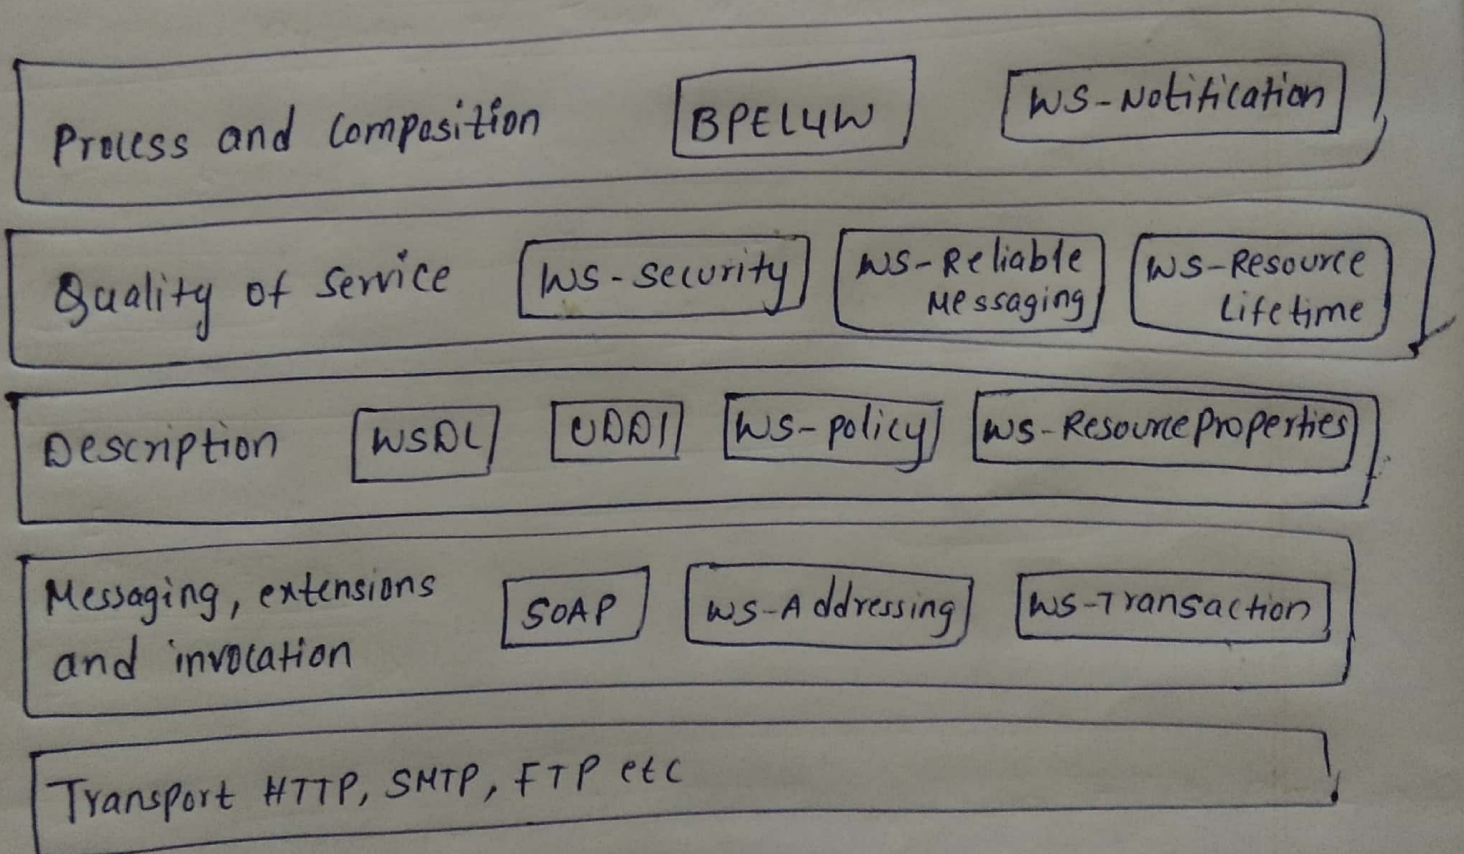 Process and Composition BPEL4W WS-Notification
Quality of Service WS-Security WS-Reliable Messaging WS-Resource Lifetime
Description WSDL UDDI WS-policy WS-ResourceProperties
Messaging, extensions
and invocation SOAP WS-Addressing WS-Transaction
Transport HTTP, SMTP, FTP etc